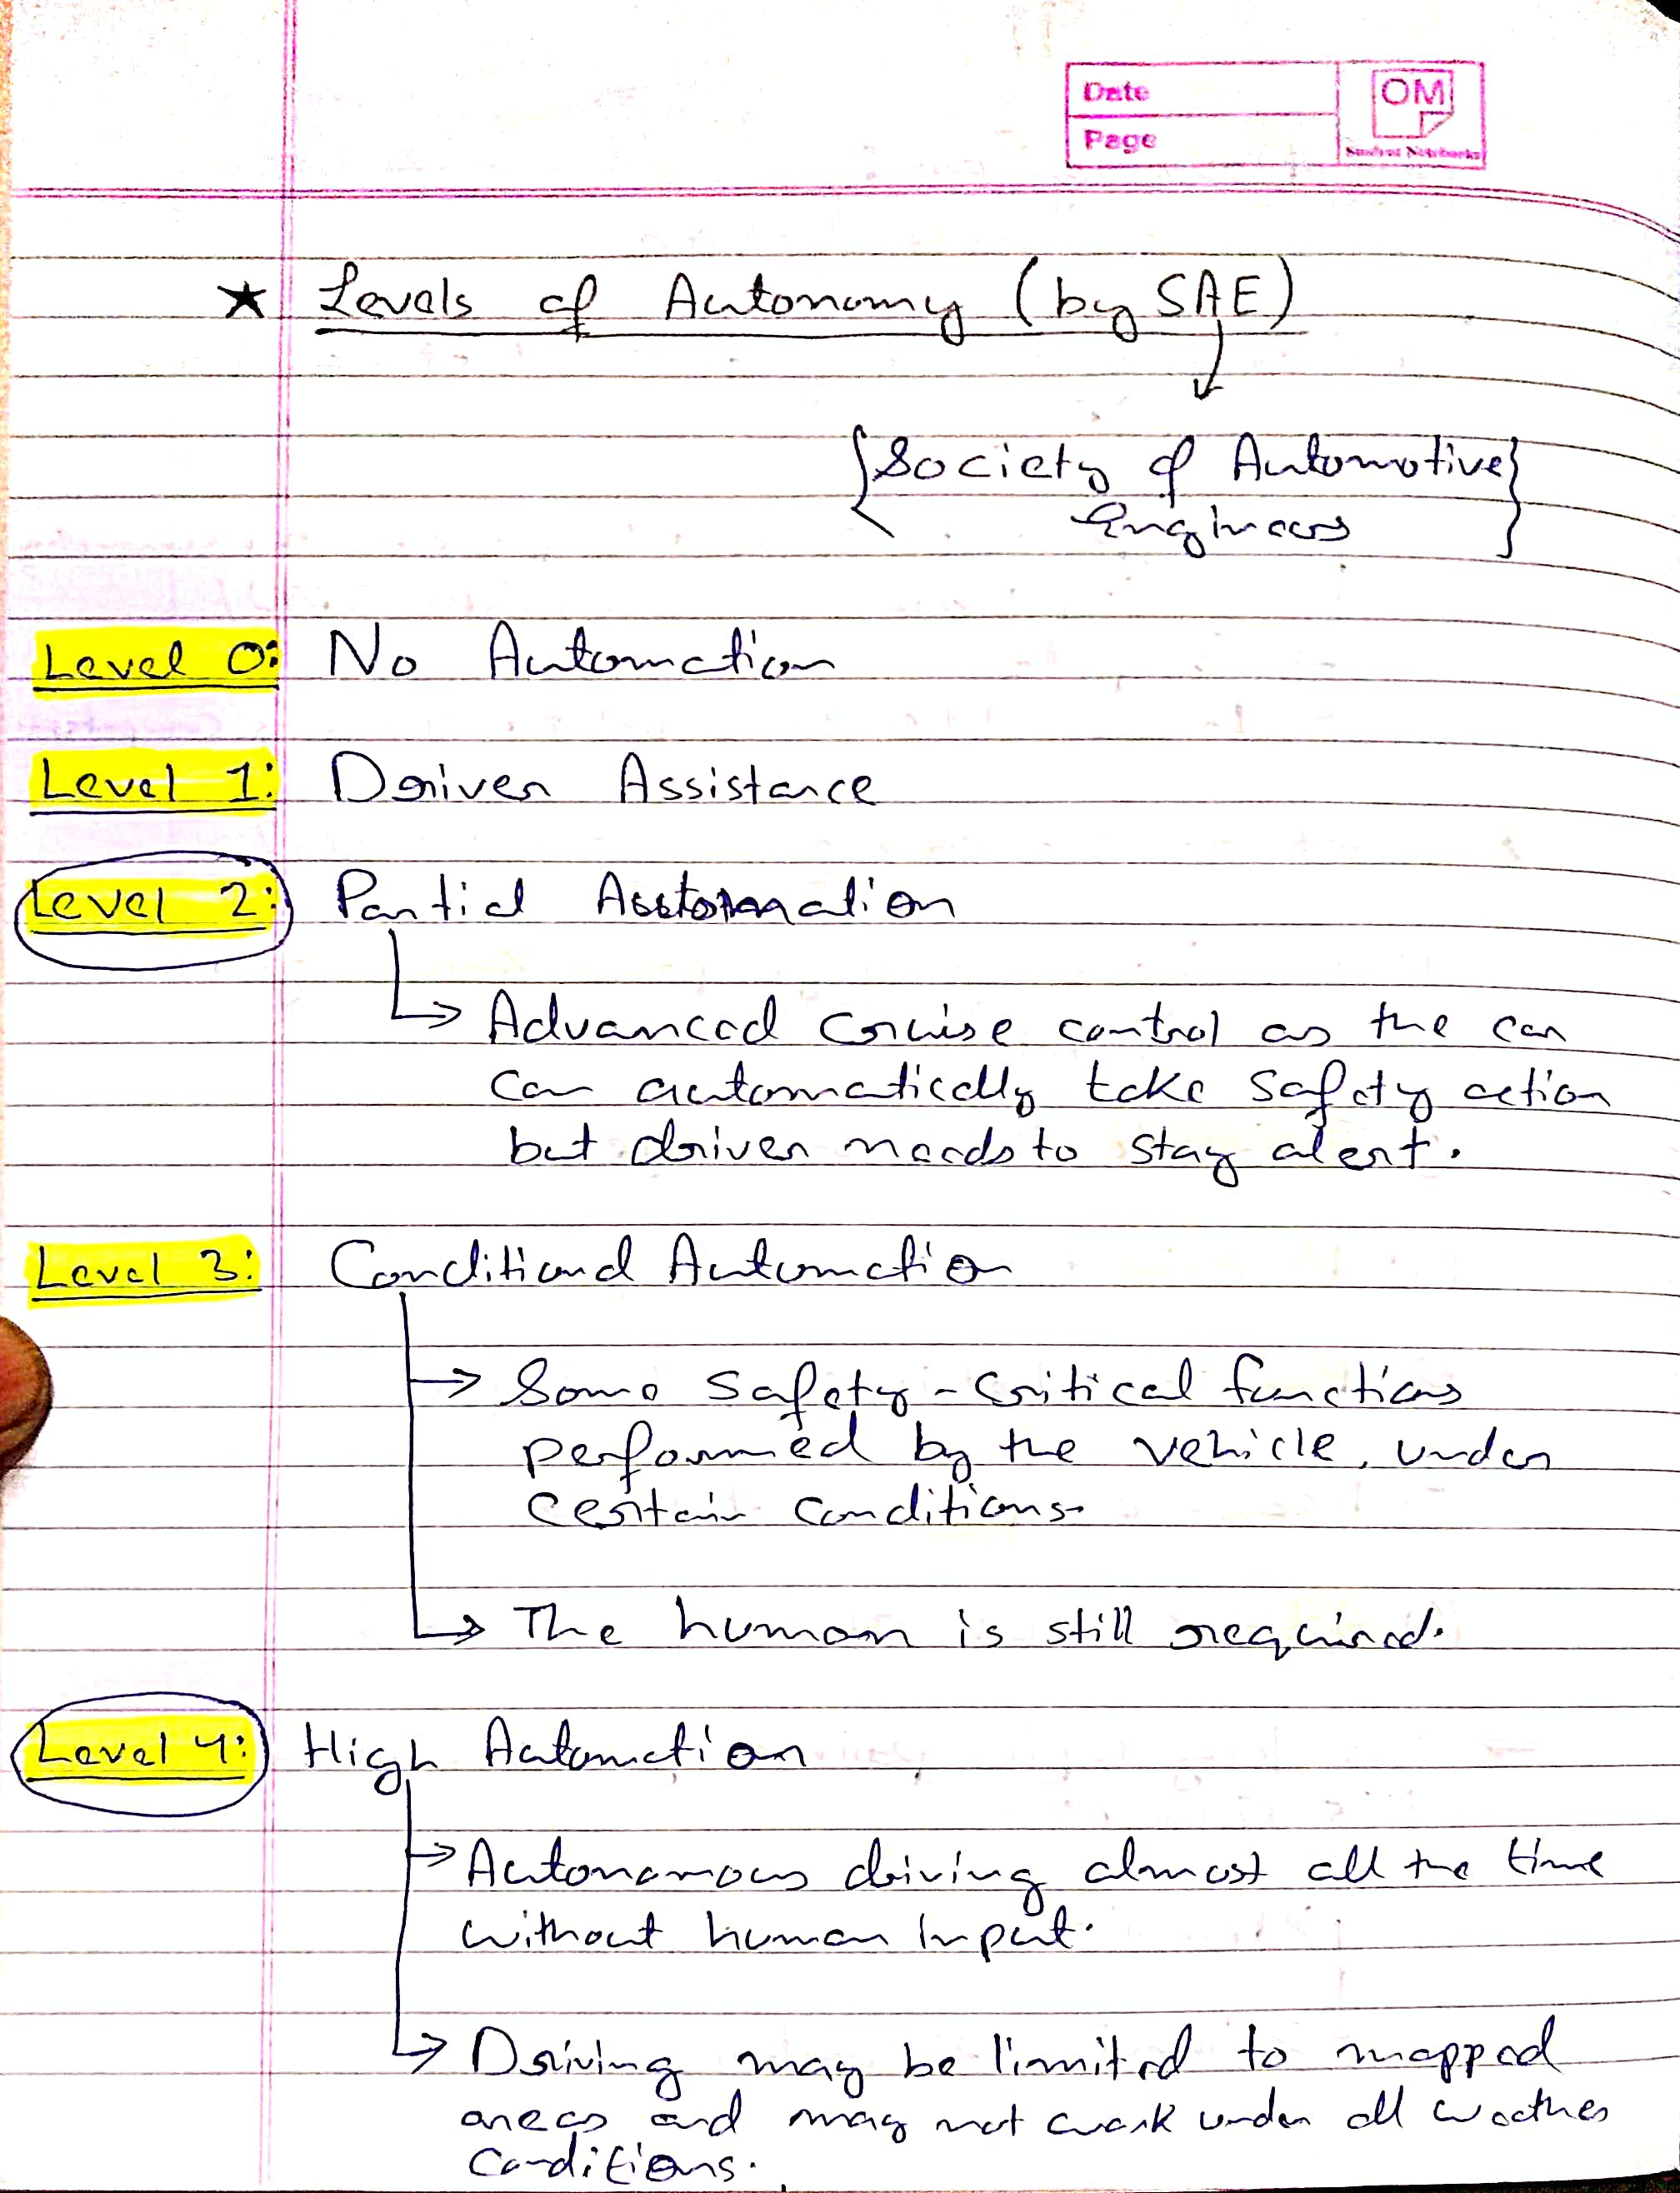 Date
Page
OM
Student Notebooks
★ Levels of Autonomy (by SAE)
{Society of Automotive
Engineers}
Level 0: No Automation
Level 1: Driver Assistance
Level 2: Partial Automation
↳ Advanced cruise control as the car
can automatically take safety action
but driver needs to stay alert.
Level 3: Conditional Automation
→ Some safety-critical functions
performed by the vehicle, under
certain conditions.
↳ The human is still required.
Level 4: High Automation
→ Autonomous driving almost all the time
without human input.
↳ Driving may be limited to mapped
areas and may not work under all weather
conditions.